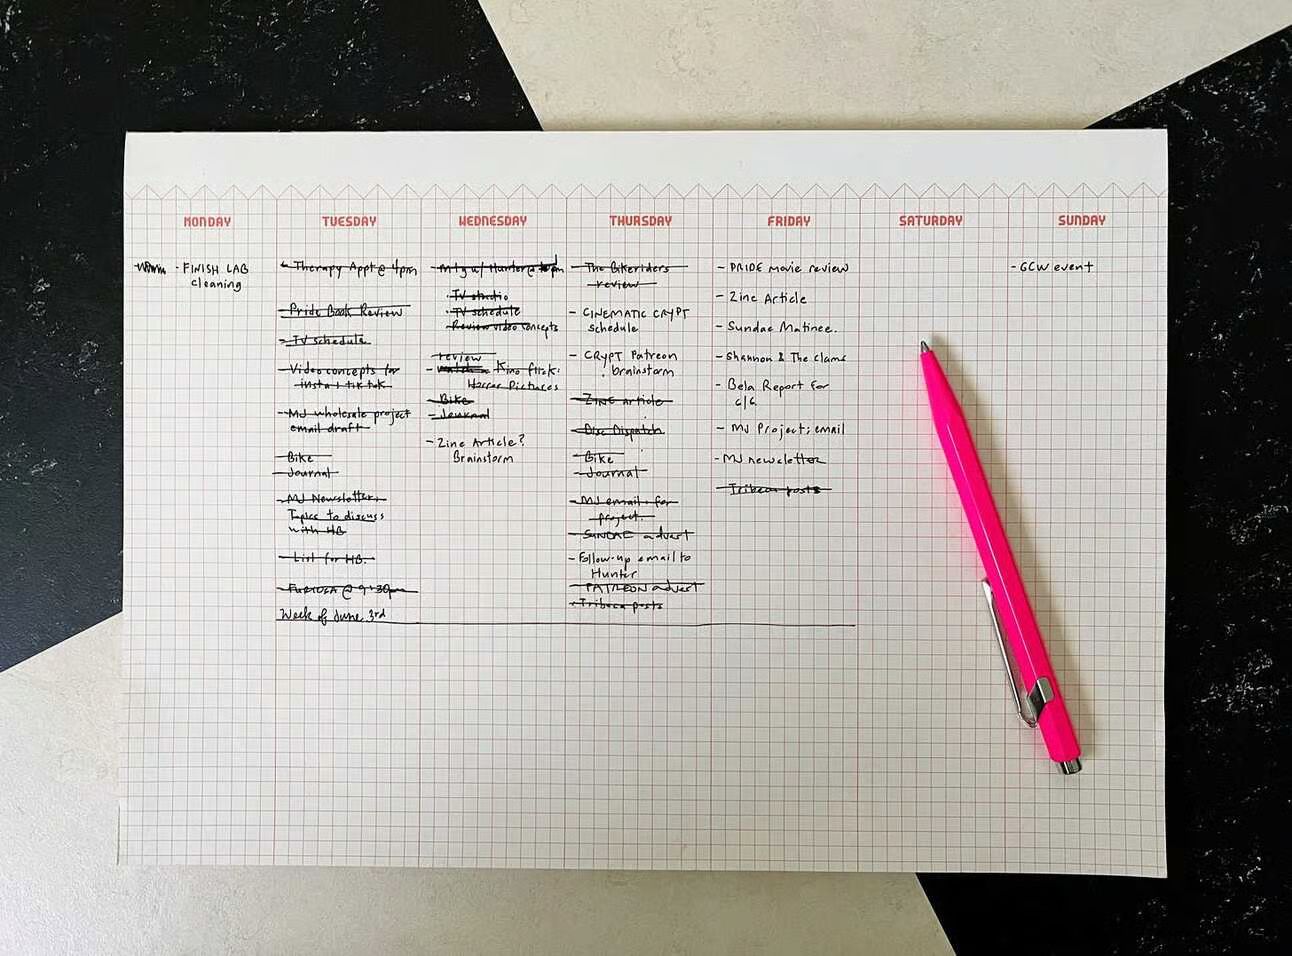 MONDAY
TUESDAY
WEDNESDAY
THURSDAY
FRIDAY
SATURDAY
SUNDAY
- FINISH LAB
cleaning
- Therapy Appt @ 4pm
- Pride Book Review
- TV schedule
- Video concepts for
insta + tik tok
- MJ wholesale project
email draft
- Bike
- Journal
- MJ Newsletter
Topics to discuss
with HB
- List for HB.
- FURIOSA @ 9:30pm
Week of June 3rd
- Mtg w/ Hunter @
· TV studio
· TV schedule
Review video concepts
review
- Kino flick:
Horror Pictures
- Bike
- Journal
- Zine Article?
Brainstorm
- The Bikeriders
review
- CINEMATIC CRYPT
schedule
- CRYPT Patreon
brainstorm
- ZINE article
- Disc Dispatch
- Bike
- Journal
- MJ email for
project.
- SUNDAE advert
- Follow-up email to
Hunter
- PATREON advert
- Tribeca posts
- PRIDE movie review
- Zine Article
- Sundae Matinee.
- Shannon & The Clams
- Bela Report for
6/6
- MJ Project; email
- MJ newsletter
- Tribeca posts
- GCW event